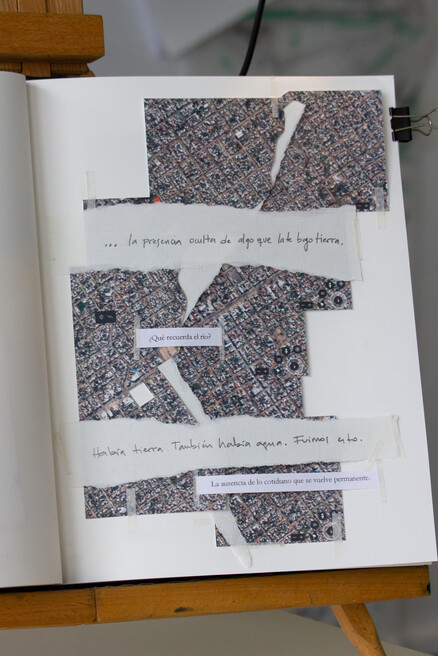 ... la presencia oculta de algo que late bajo tierra.
¿Qué recuerda el río?
Había tierra. También había agua. Fuimos esto.
La ausencia de lo cotidiano que se vuelve permanente.